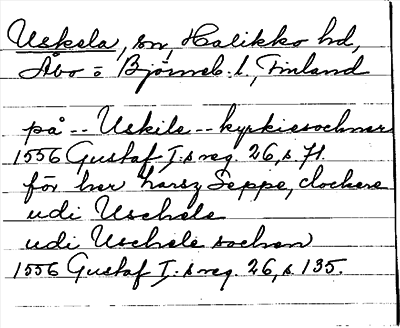 Uskela, sn, Halikko hd,
Åbo o Björneb. l., Finland
på -- Uskile -- kyrkiesochnar
1556 Gustaf I:s reg. 26, s. 71.
för her Larsz Seppe, clockere
udi Uschele
udi Uschele sochen
1556 Gustaf I:s reg. 26, s. 135.